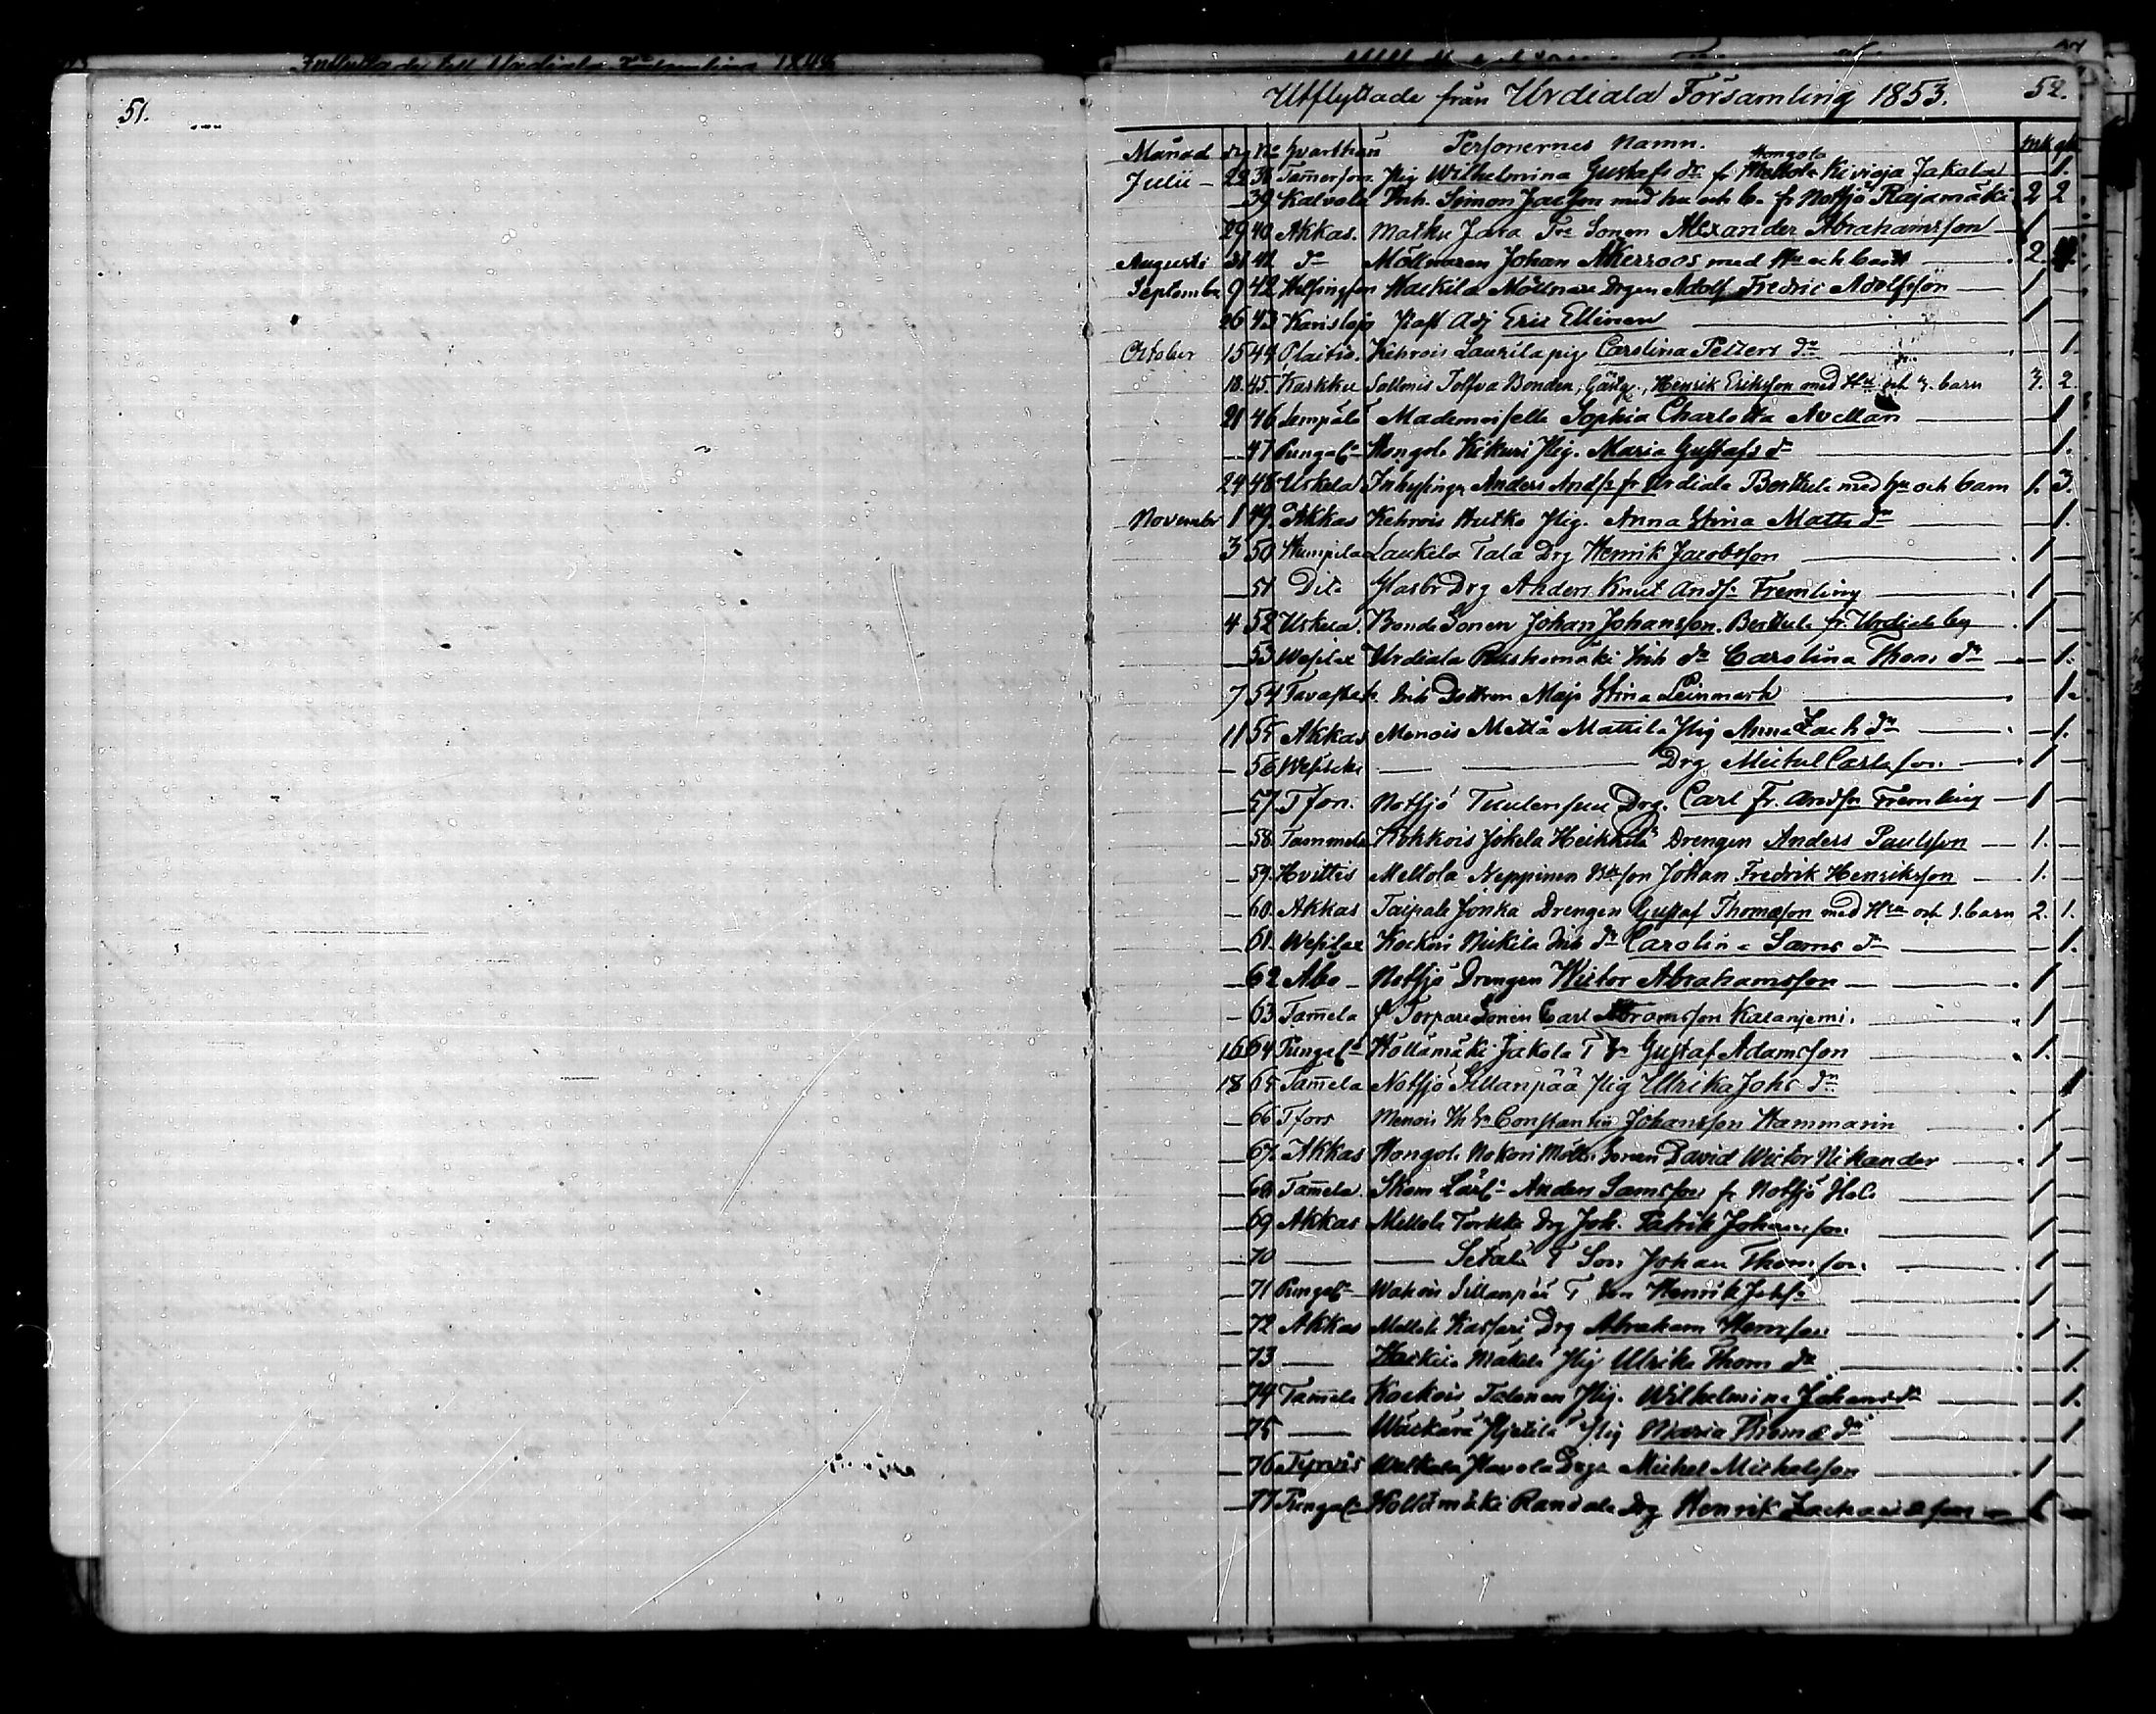 51.
Utflyttade från Urdiala Församling 1853. 52.
Månad dag No hvarthän Personernes Namn. mk qk
Hongola
Julii 22 38 Tam̅erfors Pig Wilhelmina Gustafs dr fr Kivioja Jakala 1.
39 Kalvola Inh. Simon Jacsson med hu och b. fr Notsjö Rajamäki 2 2
29 40 Akkas. Matku Jara Trp Sonen Alexander Abrahamsson 1
Augusti 31 41 do Möllnaren Johan Akerroos med Hu och barn 2.
Septembr 9 42 Helsingfors Hackila Möllnare Drgen Adolf Fredric Adolfsson 1
26 43 Karislojo Past Adj Eric Ellinen 1
October 15 44 Plaitis. Kehrois Laurila pig Carolina Petters dr 1
18. 45. Karkku Salmis Tolfva Bonden, Henrik Eriksson med Hu och barn 2.
21 46 Lempälä Mademoiselle Sophia Charlotta Avellan 1
47 Pungal. Hongola Kikuri Pig. Maria Gustafs dr 1.
24 48 Uskela Inhysinge Anders Andss fr Urdiala Berttula med hu och barn 1. 3.
Novembr 1 49. Akkas Kehrois Autka Pig. Anna Stina Matts dr 1.
3 50 Humpila Laukela Tala Drg Henrik Jacobsson 1
51 Dito Glasbr Drg Anders Knut Andss Fremling 1
4 52 Uskela. Bonde Sonen Johan Johansson. Berttula fr. Urdiala by 1
53 Wesilax Urdiala Ruskemäki Inh dr Carolina Thom dr 1.
7 54 Tavasteh. Inh Dottren Maja Stina Leinmark 1.
11 55 Akkas Menois Mattila Pig Anna Zach dr 1.
56 Wesilax Drg Michel Carlsson 1
57 T fors. Notsjö Tuulensuu Drg. Carl Fr. Andsn Fremling 1
58. Tammela Kokkois Jokela Heikkilä Drengen Anders Paulsson 1.
59. Hvittis Mellola Neppinen Bdeson Johan Fredrik Henriksson 1.
60. Akkas Taipale Jonka Drengen Gustaf Thomasson med Hru och 1. barn 2. 1.
61. Wesilax Kockois Nickila Inh dr Carolina Sams dr 1.
62 Abo Notsjö Drengen Wictor Abrahamsson 1
63 Tam̅ela f Torpare Sonen Carl Abramsson Kalanjemi. 1
16 64 Pungal. Hollämäki Jakola T Sn Gustaf Adamsson 1.
18 65 Tam̅ela Notsjö Sillanpää Pig Ulrika Johs dr 1
66 T fors Menois Constantin Johansson Hammarin 1
67. Akkas Hongola Nokori Möll. Sonen David Wictor Nikander 1
68 Tam̅ela. Skom Lärl. Anders Samsson fr Notsjö 1
69 Akkas Mellola Torkko Drg Joh. Patrik Johansson 1
70 Setälä T Son Johan Thomsson. 1
71 Pungal. Wahois Sillanpää T Son Henrik Johss 1
72 Akkas Mellola Kassari Drg Abraham Hensson 1
73 Hackila Mäkelä Pig Ulrika Thom dr 1.
74 Tam̅ela Kockois Talonen Pig. Wilhelmina Johans dr 1.
75 Wäckärä Pig Maria Thom dr 1
76 Tyrvis Drgn Michel Michelsson 1
77 Pungal. Hollämäki Randala Drg Henrik Zachariasson 1